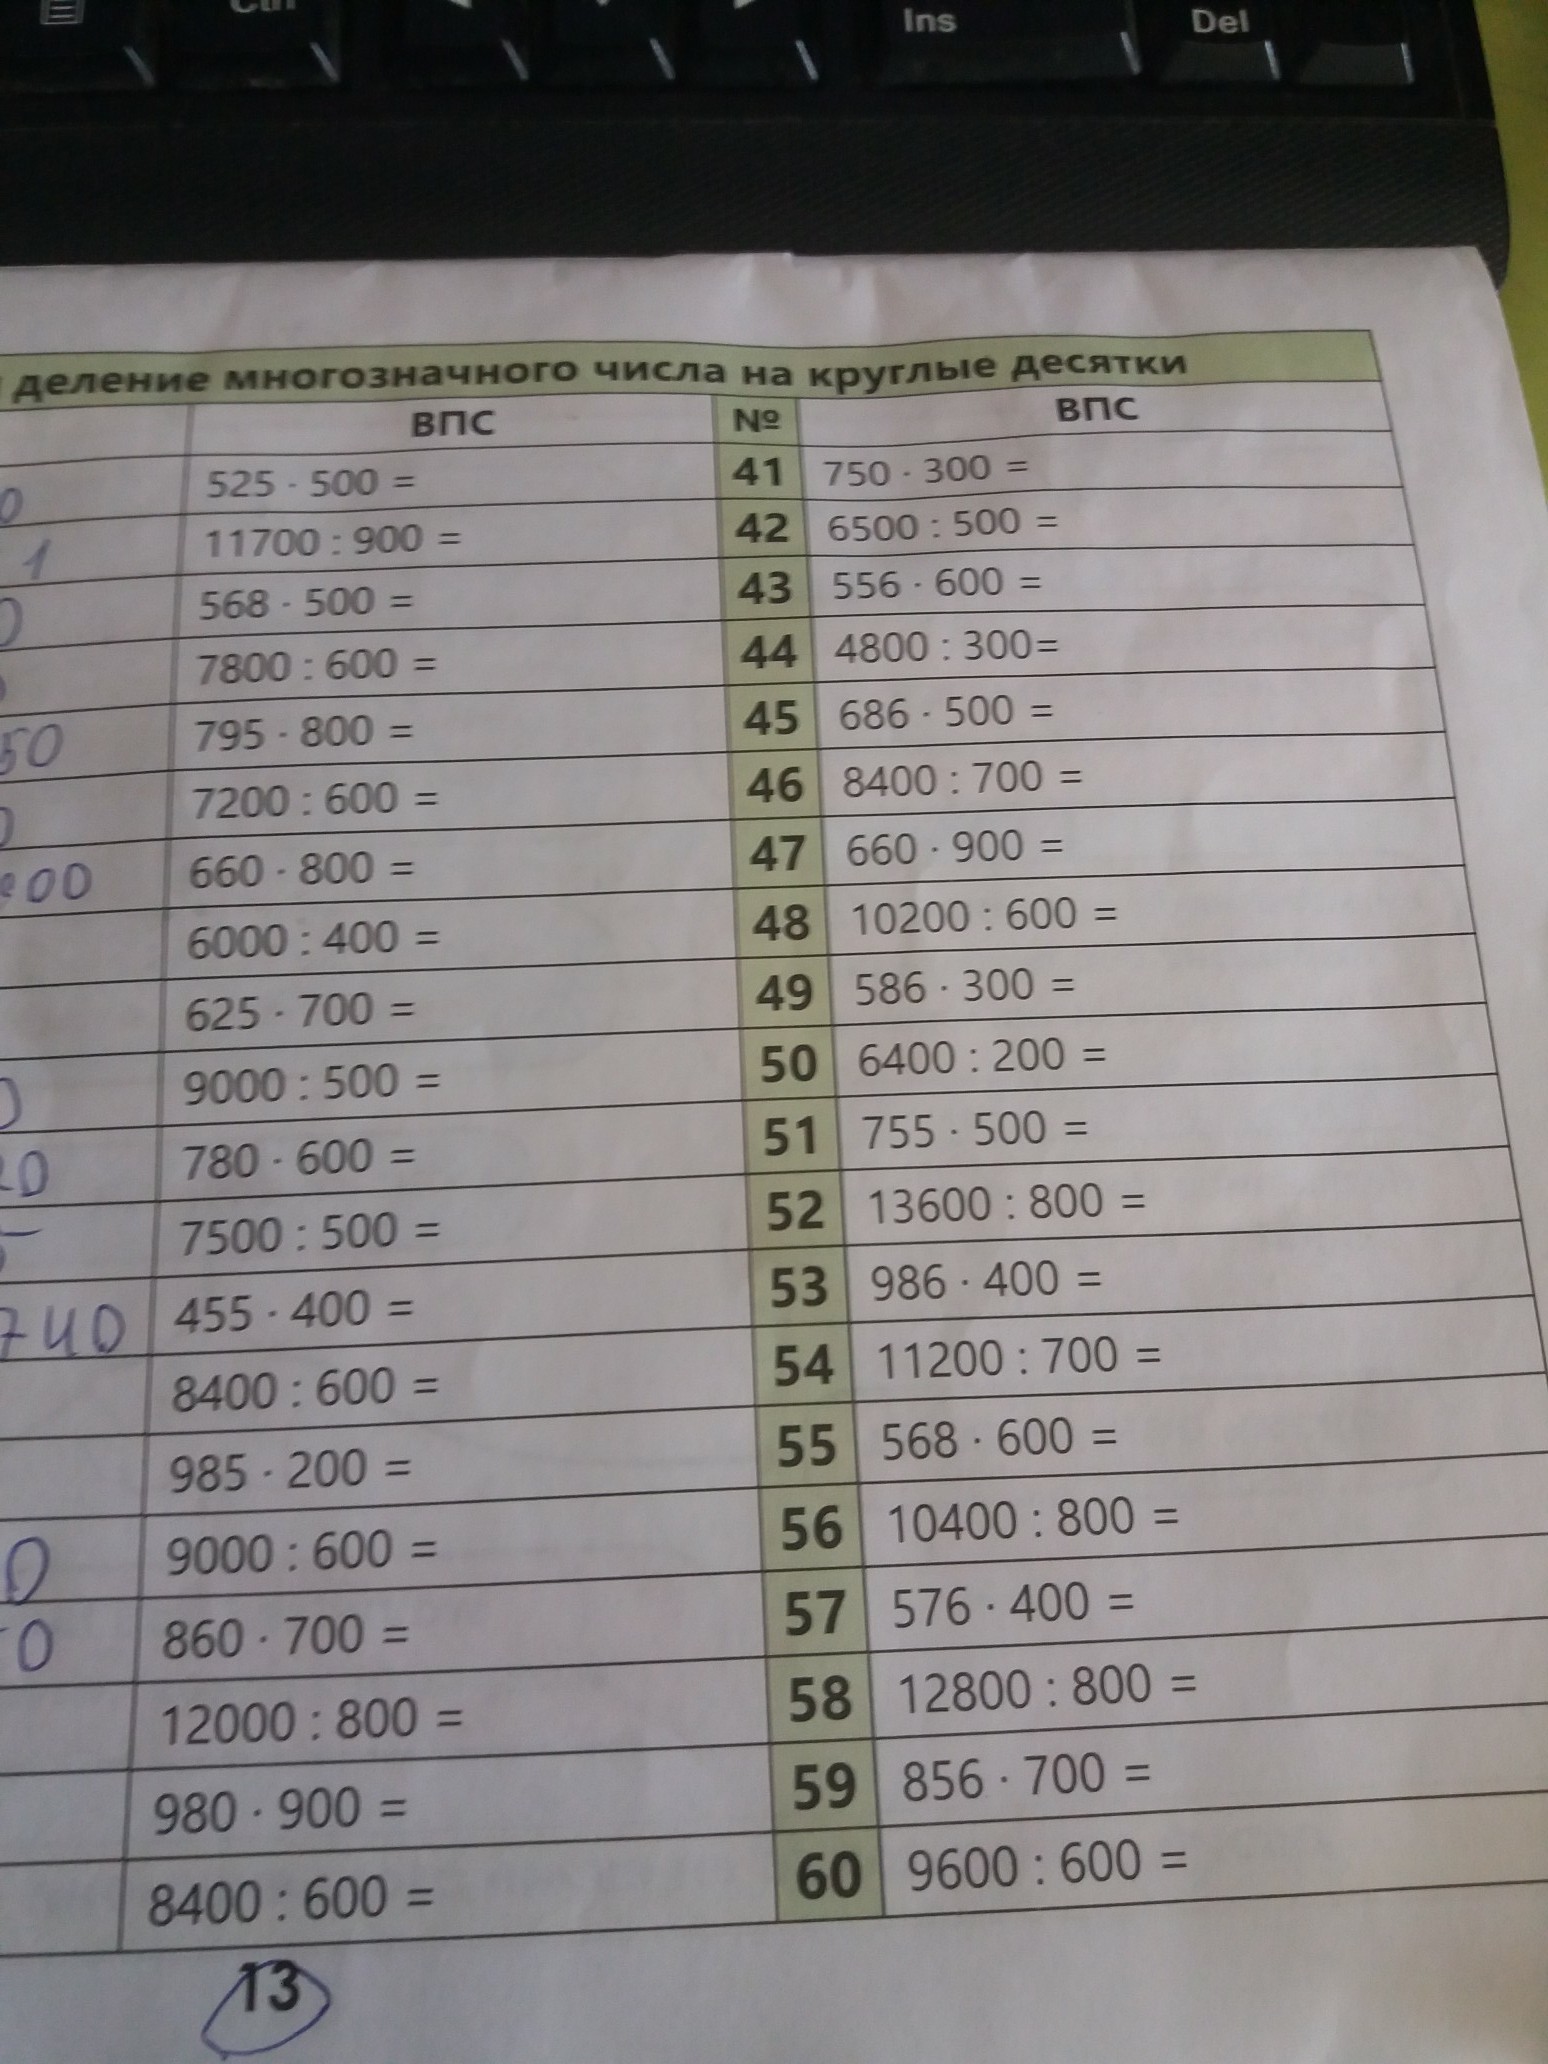 Ins Del
деление многозначного числа на круглые десятки
ВПС № ВПС
525 · 500 = 41 750 · 300 =
11700 : 900 = 42 6500 : 500 =
568 · 500 = 43 556 · 600 =
7800 : 600 = 44 4800 : 300=
50 795 · 800 = 45 686 · 500 =
7200 : 600 = 46 8400 : 700 =
00 660 · 800 = 47 660 · 900 =
6000 : 400 = 48 10200 : 600 =
625 · 700 = 49 586 · 300 =
9000 : 500 = 50 6400 : 200 =
780 · 600 = 51 755 · 500 =
7500 : 500 = 52 13600 : 800 =
740 455 · 400 = 53 986 · 400 =
8400 : 600 = 54 11200 : 700 =
985 · 200 = 55 568 · 600 =
0 9000 : 600 = 56 10400 : 800 =
0 860 · 700 = 57 576 · 400 =
12000 : 800 = 58 12800 : 800 =
980 · 900 = 59 856 · 700 =
8400 : 600 = 60 9600 : 600 =
13